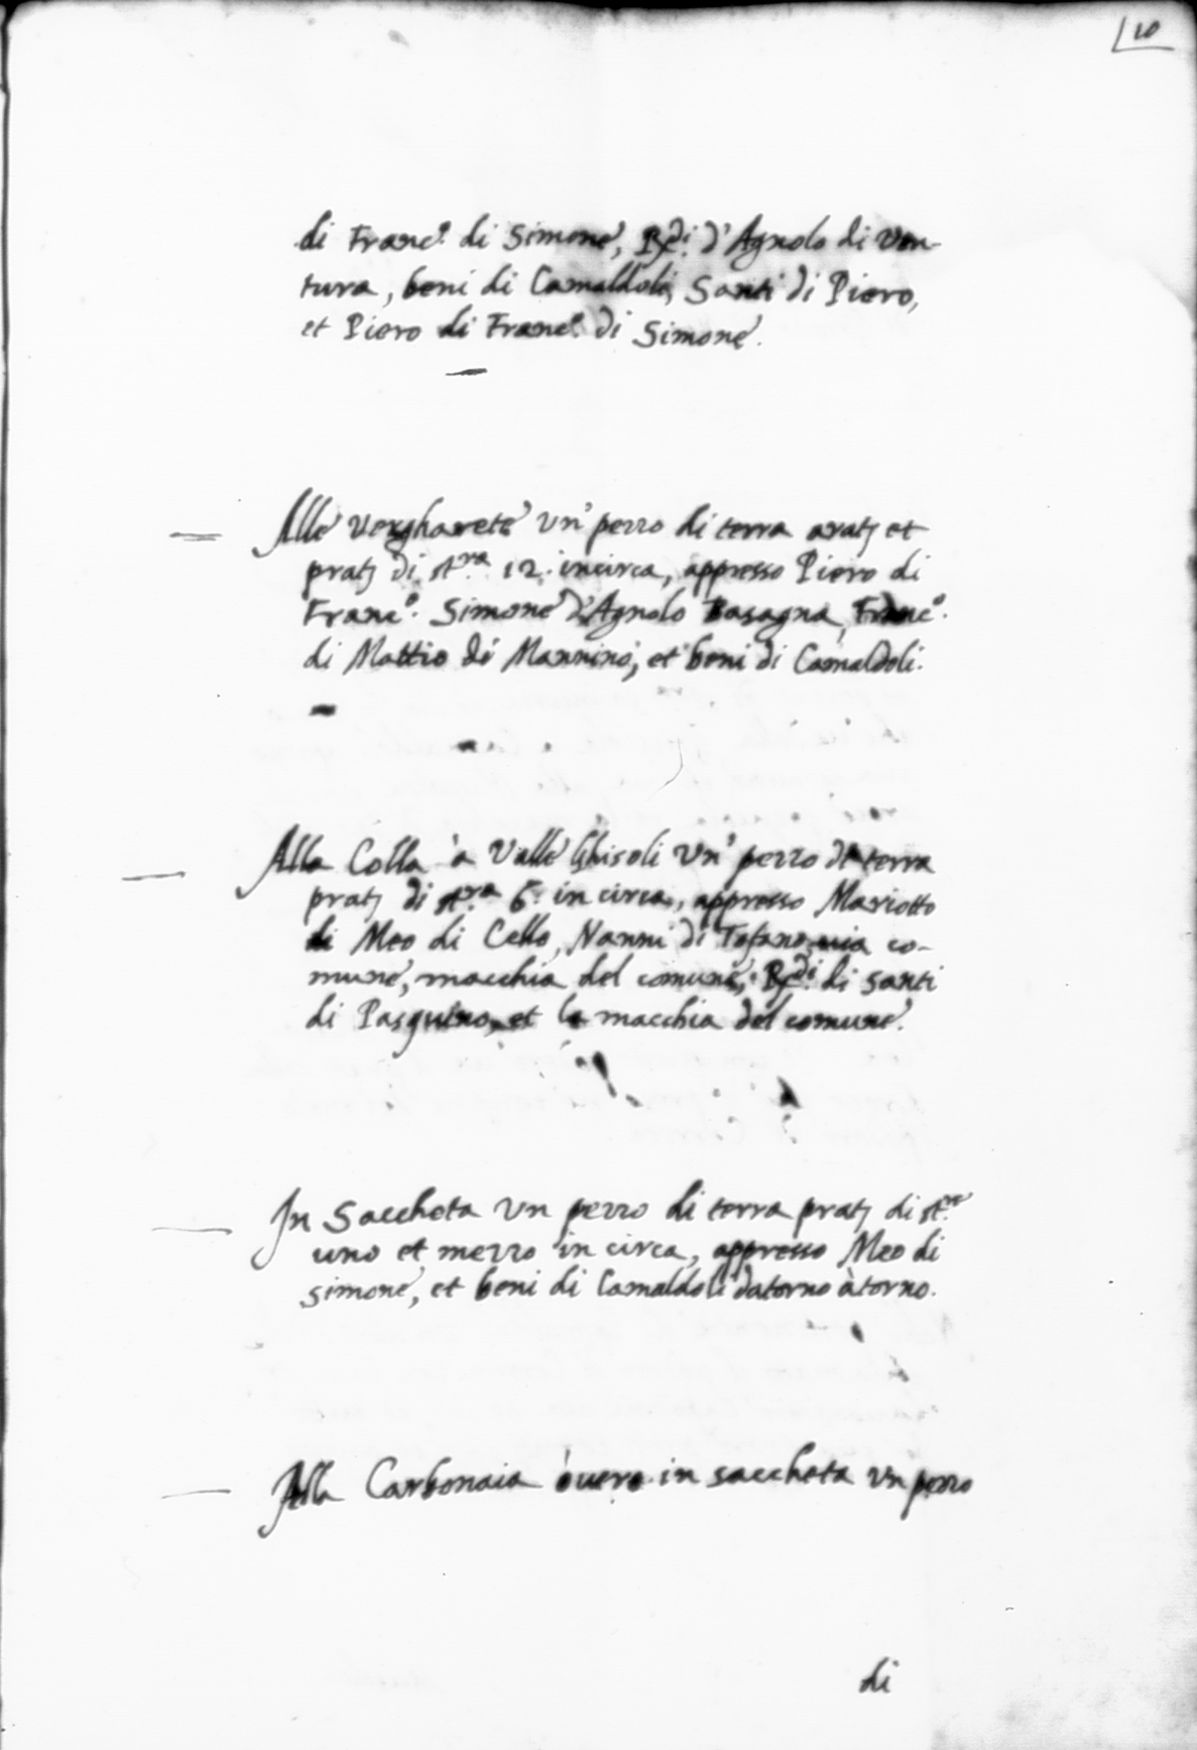 10
di Franc.º di Simone, Rdi. d'Agnolo di Ven-
tura, beni di Camaldoli, Santi di Piero,
et Piero di Franc.º di Simone.
Alle Vergharete un' pezzo di terra aratj et
pratj di st.ra 12. incirca, appresso Piero di
Franc.º Simone d'Agnolo Basagna, Franc.º
di Mattio di Mannino, et beni di Camaldoli.
Alla Colla à Valle Ghisoli un' pezzo di terra
pratj di st.ra 6. in circa, appresso Mariotto
di Meo di Cello, Nanni di Tofano, uia co-
mune, macchia del comune, Rdi. di santi
di Pasquino, et la macchia del comune.
In Saccheta un pezzo di terra pratj di st.ro
uno et mezzo in circa, appresso Meo di
simone, et beni di Camaldoli datorno àtorno.
Alla Carbonaia òuero in saccheta un pezzo
di